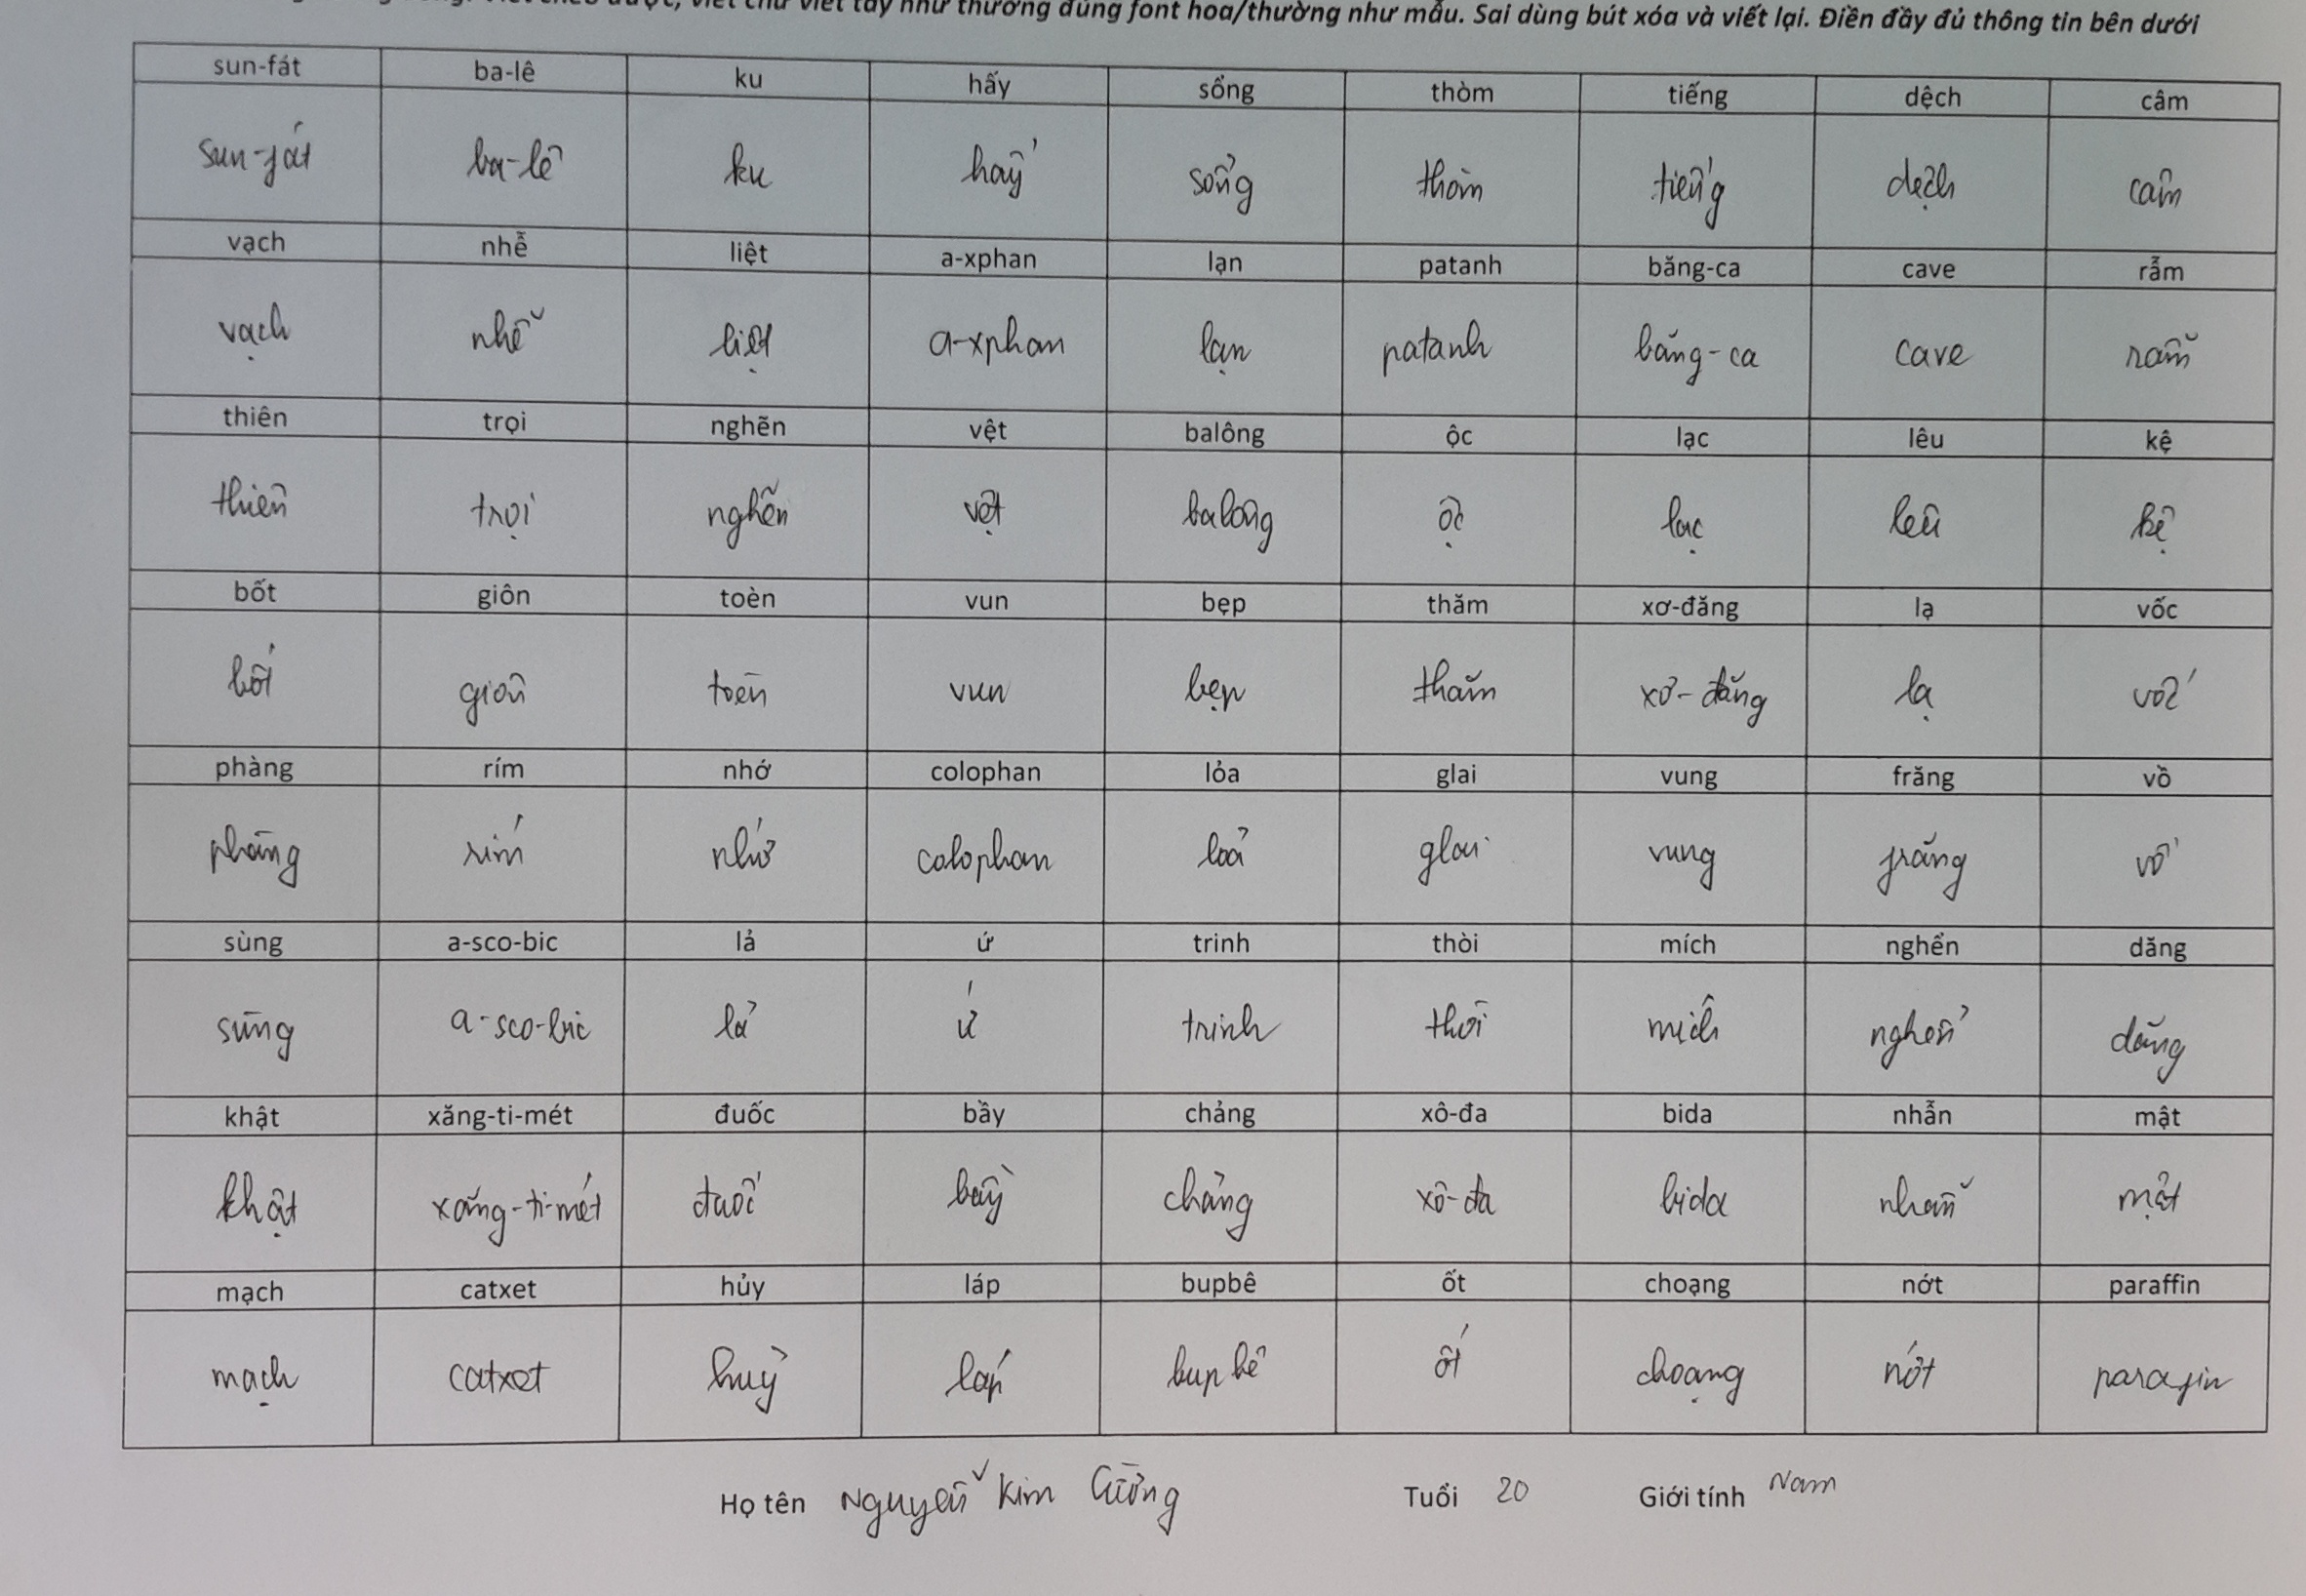 viết chữ viết tay như thường đúng font hoa/thường như mẫu. Sai dùng bút xóa và viết lại. Điền đầy đủ thông tin bên dưới
sun-fát ba-lê ku hấy sổng thòm tiếng dệch câm
sun-fát ba-lê ku hấy sổng thòm tiếng dệch câm
vạch nhễ liệt a-xphan lạn patanh băng-ca cave rẫm
vạch nhễ liệt a-xphan lạn patanh băng-ca cave rẫm
thiên trọi nghẽn vệt balông ộc lạc lêu kệ
thiên trọi nghẽn vệt balông ộc lạc lêu kệ
bốt giôn toèn vun bẹp thăm xơ-đăng lạ vốc
bốt giôn toèn vun bẹp thăm xơ-đăng lạ vốc
phàng rím nhớ colophan lỏa glai vung frăng vồ
phàng rím nhớ colophan lỏa glai vung frăng vồ
sùng a-sco-bic lả ứ trinh thòi mích nghển dăng
sùng a-sco-bic lả ứ trinh thòi mích nghển dăng
khật xăng-ti-mét đuốc bầy chảng xô-đa bida nhẫn mật
khật xăng-ti-mét đuốc bầy chảng xô-đa bida nhẫn mật
mạch catxet hủy láp bupbê ốt choạng nớt paraffin
mạch catxet huỷ láp bupbê ốt choạng nớt parafin
Họ tên Nguyễn Kim Cường Tuổi 20 Giới tính Nam